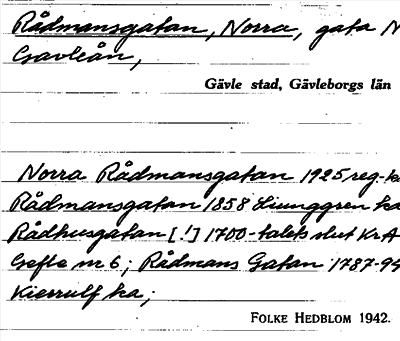 Rådmansgatan, Norra, gata N
Gavleån,
Gävle stad, Gävleborgs län
Norra Rådmansgatan 1925 reg-ka
Rådmansgatan 1858 Ljunggren ka
Rådhusgatan [!] 1700-talets slut KrA
Gefle nr 6; Rådmans Gatan 1787-94
Kierrulf ka;
FOLKE HEDBLOM 1942.